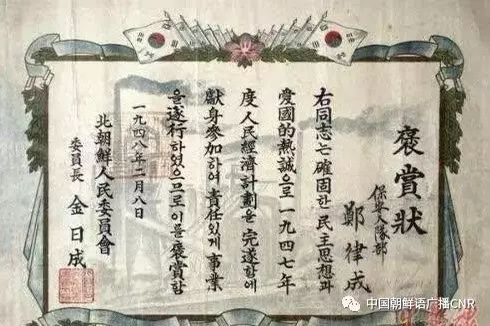 褒賞狀
保安大隊部
鄭律成
右同志는確固한民主思想과
愛國的熱誠으로一九四七年
度人民經濟計劃을完遂함에
獻身參加하여責任있게事業
을遂行하였으므로이를褒賞함
一九四八年二月八日
北朝鮮人民委員會
委員長 金日成
中国朝鲜语广播CNR